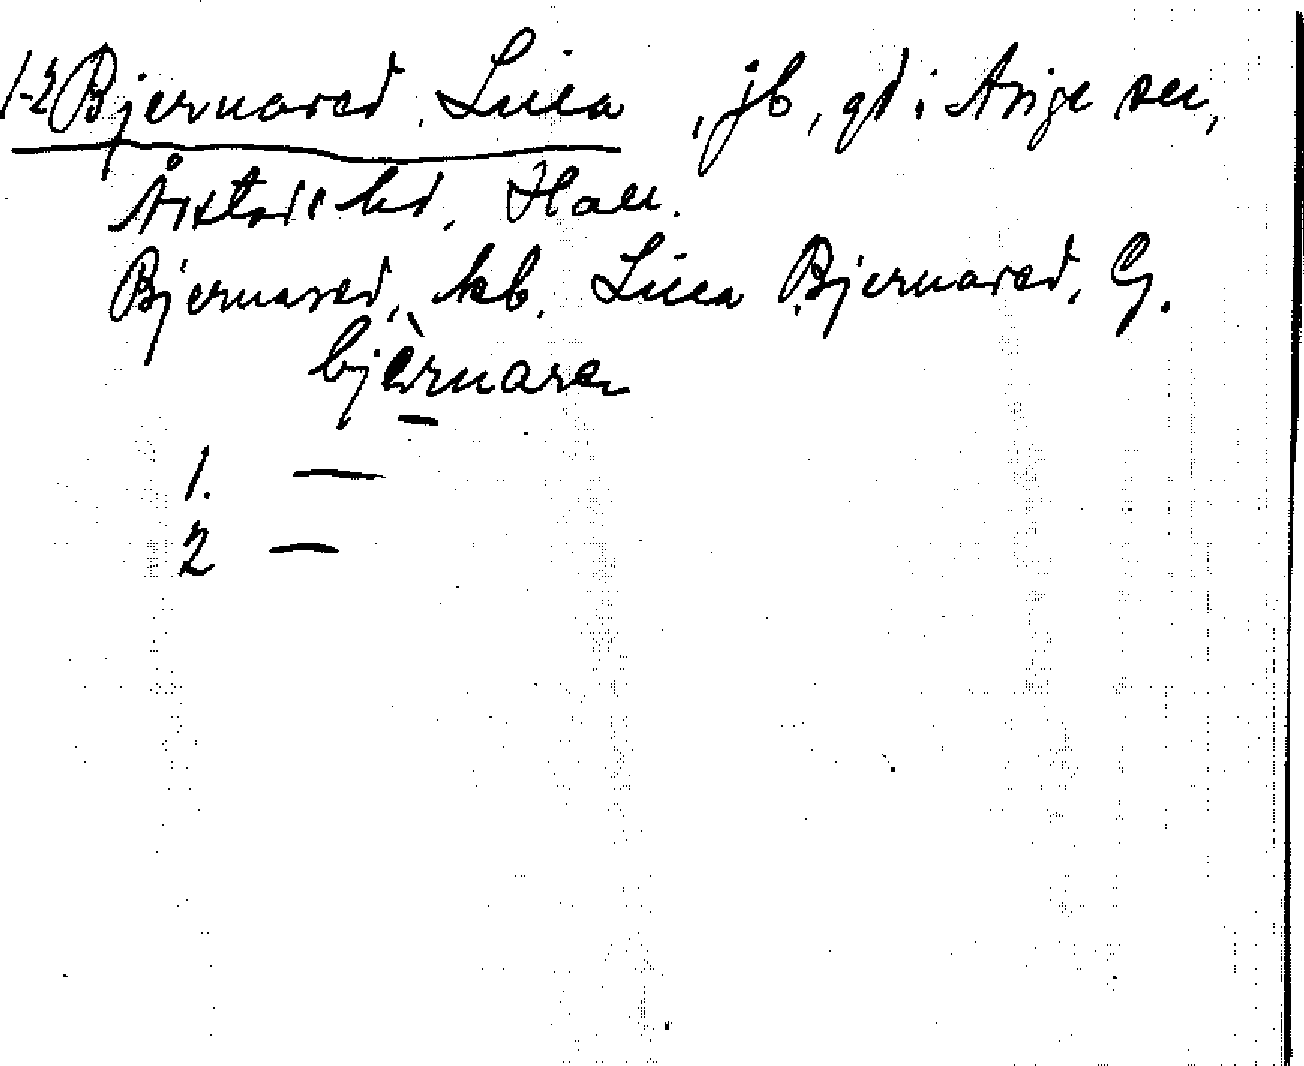 1-2 Bjernared, Lilla, jb, gd i Asige sn,
Årstads hd, Hall.
Bjernared, kb. Lilla Bjernared, G.
bjèrnare
1. —
2 —